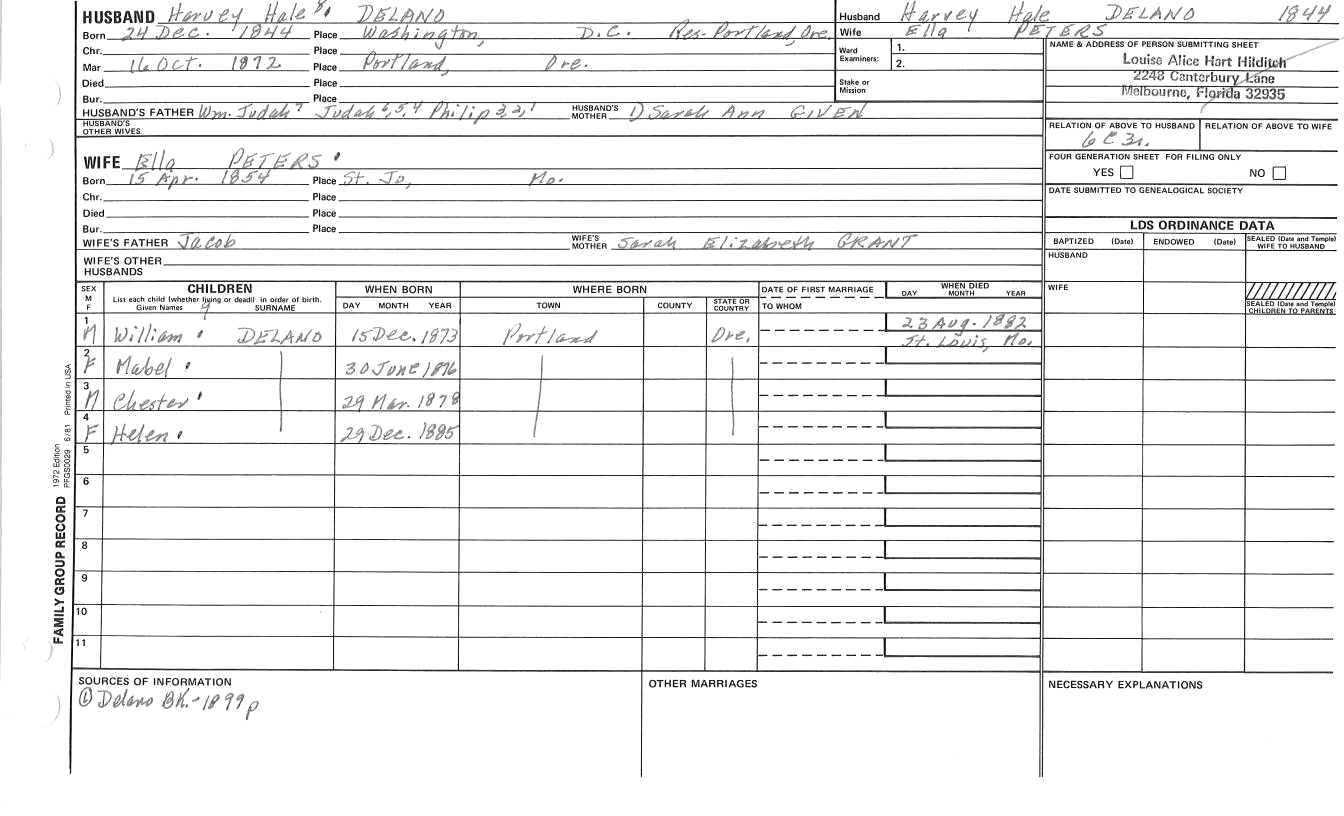 HUSBAND Harvey Hale 8. DELANO
Born 24 Dec. 1844 Place Washington, D.C. Res-Portland, Ore.
Chr. Place
Mar 16 Oct. 1872 Place Portland, Ore.
Died Place
Bur. Place
HUSBAND'S FATHER Wm. Judah 7 Judah 6,5,4 Philip 3,2,1 HUSBAND'S MOTHER 1) Sarah Ann GIVEN
HUSBAND'S OTHER WIVES
WIFE Ella PETERS
Born 15 Apr. 1854 Place St. Jo, Mo.
Chr. Place
Died Place
Bur. Place
WIFE'S FATHER Jacob WIFE'S MOTHER Sarah Elizabeth GRANT
WIFE'S OTHER HUSBANDS
Husband Harvey Hale DELANO 1844
Wife Ella PETERS
Ward Examiners: 1.
2.
Stake or Mission
NAME & ADDRESS OF PERSON SUBMITTING SHEET
Louise Alice Hart Hilditch
2248 Canterbury Lane
Melbourne, Florida 32935
RELATION OF ABOVE TO HUSBAND RELATION OF ABOVE TO WIFE
6C3r.
FOUR GENERATION SHEET FOR FILING ONLY
YES NO
DATE SUBMITTED TO GENEALOGICAL SOCIETY
LDS ORDINANCE DATA
BAPTIZED (Date) ENDOWED (Date) SEALED (Date and Temple) WIFE TO HUSBAND
HUSBAND
WIFE
SEALED (Date and Temple) CHILDREN TO PARENTS
SEX M F CHILDREN WHEN BORN WHERE BORN DATE OF FIRST MARRIAGE WHEN DIED
List each child (whether living or dead) in order of birth.
Given Names 9 SURNAME DAY MONTH YEAR TOWN COUNTY STATE OR COUNTRY TO WHOM DAY MONTH YEAR
1 M William DELANO 15 Dec. 1873 Portland Ore. 23 Aug. 1882
St. Louis, Mo.
2 F Mabel 30 June 1876
3 M Chester 29 Mar. 1878
4 F Helen 29 Dec. 1885
5
6
7
8
9
10
11
SOURCES OF INFORMATION
① Delano BK.-1899 p
OTHER MARRIAGES
NECESSARY EXPLANATIONS
FAMILY GROUP RECORD
1972 Edition 6/81 Printed in USA
PFGS0029